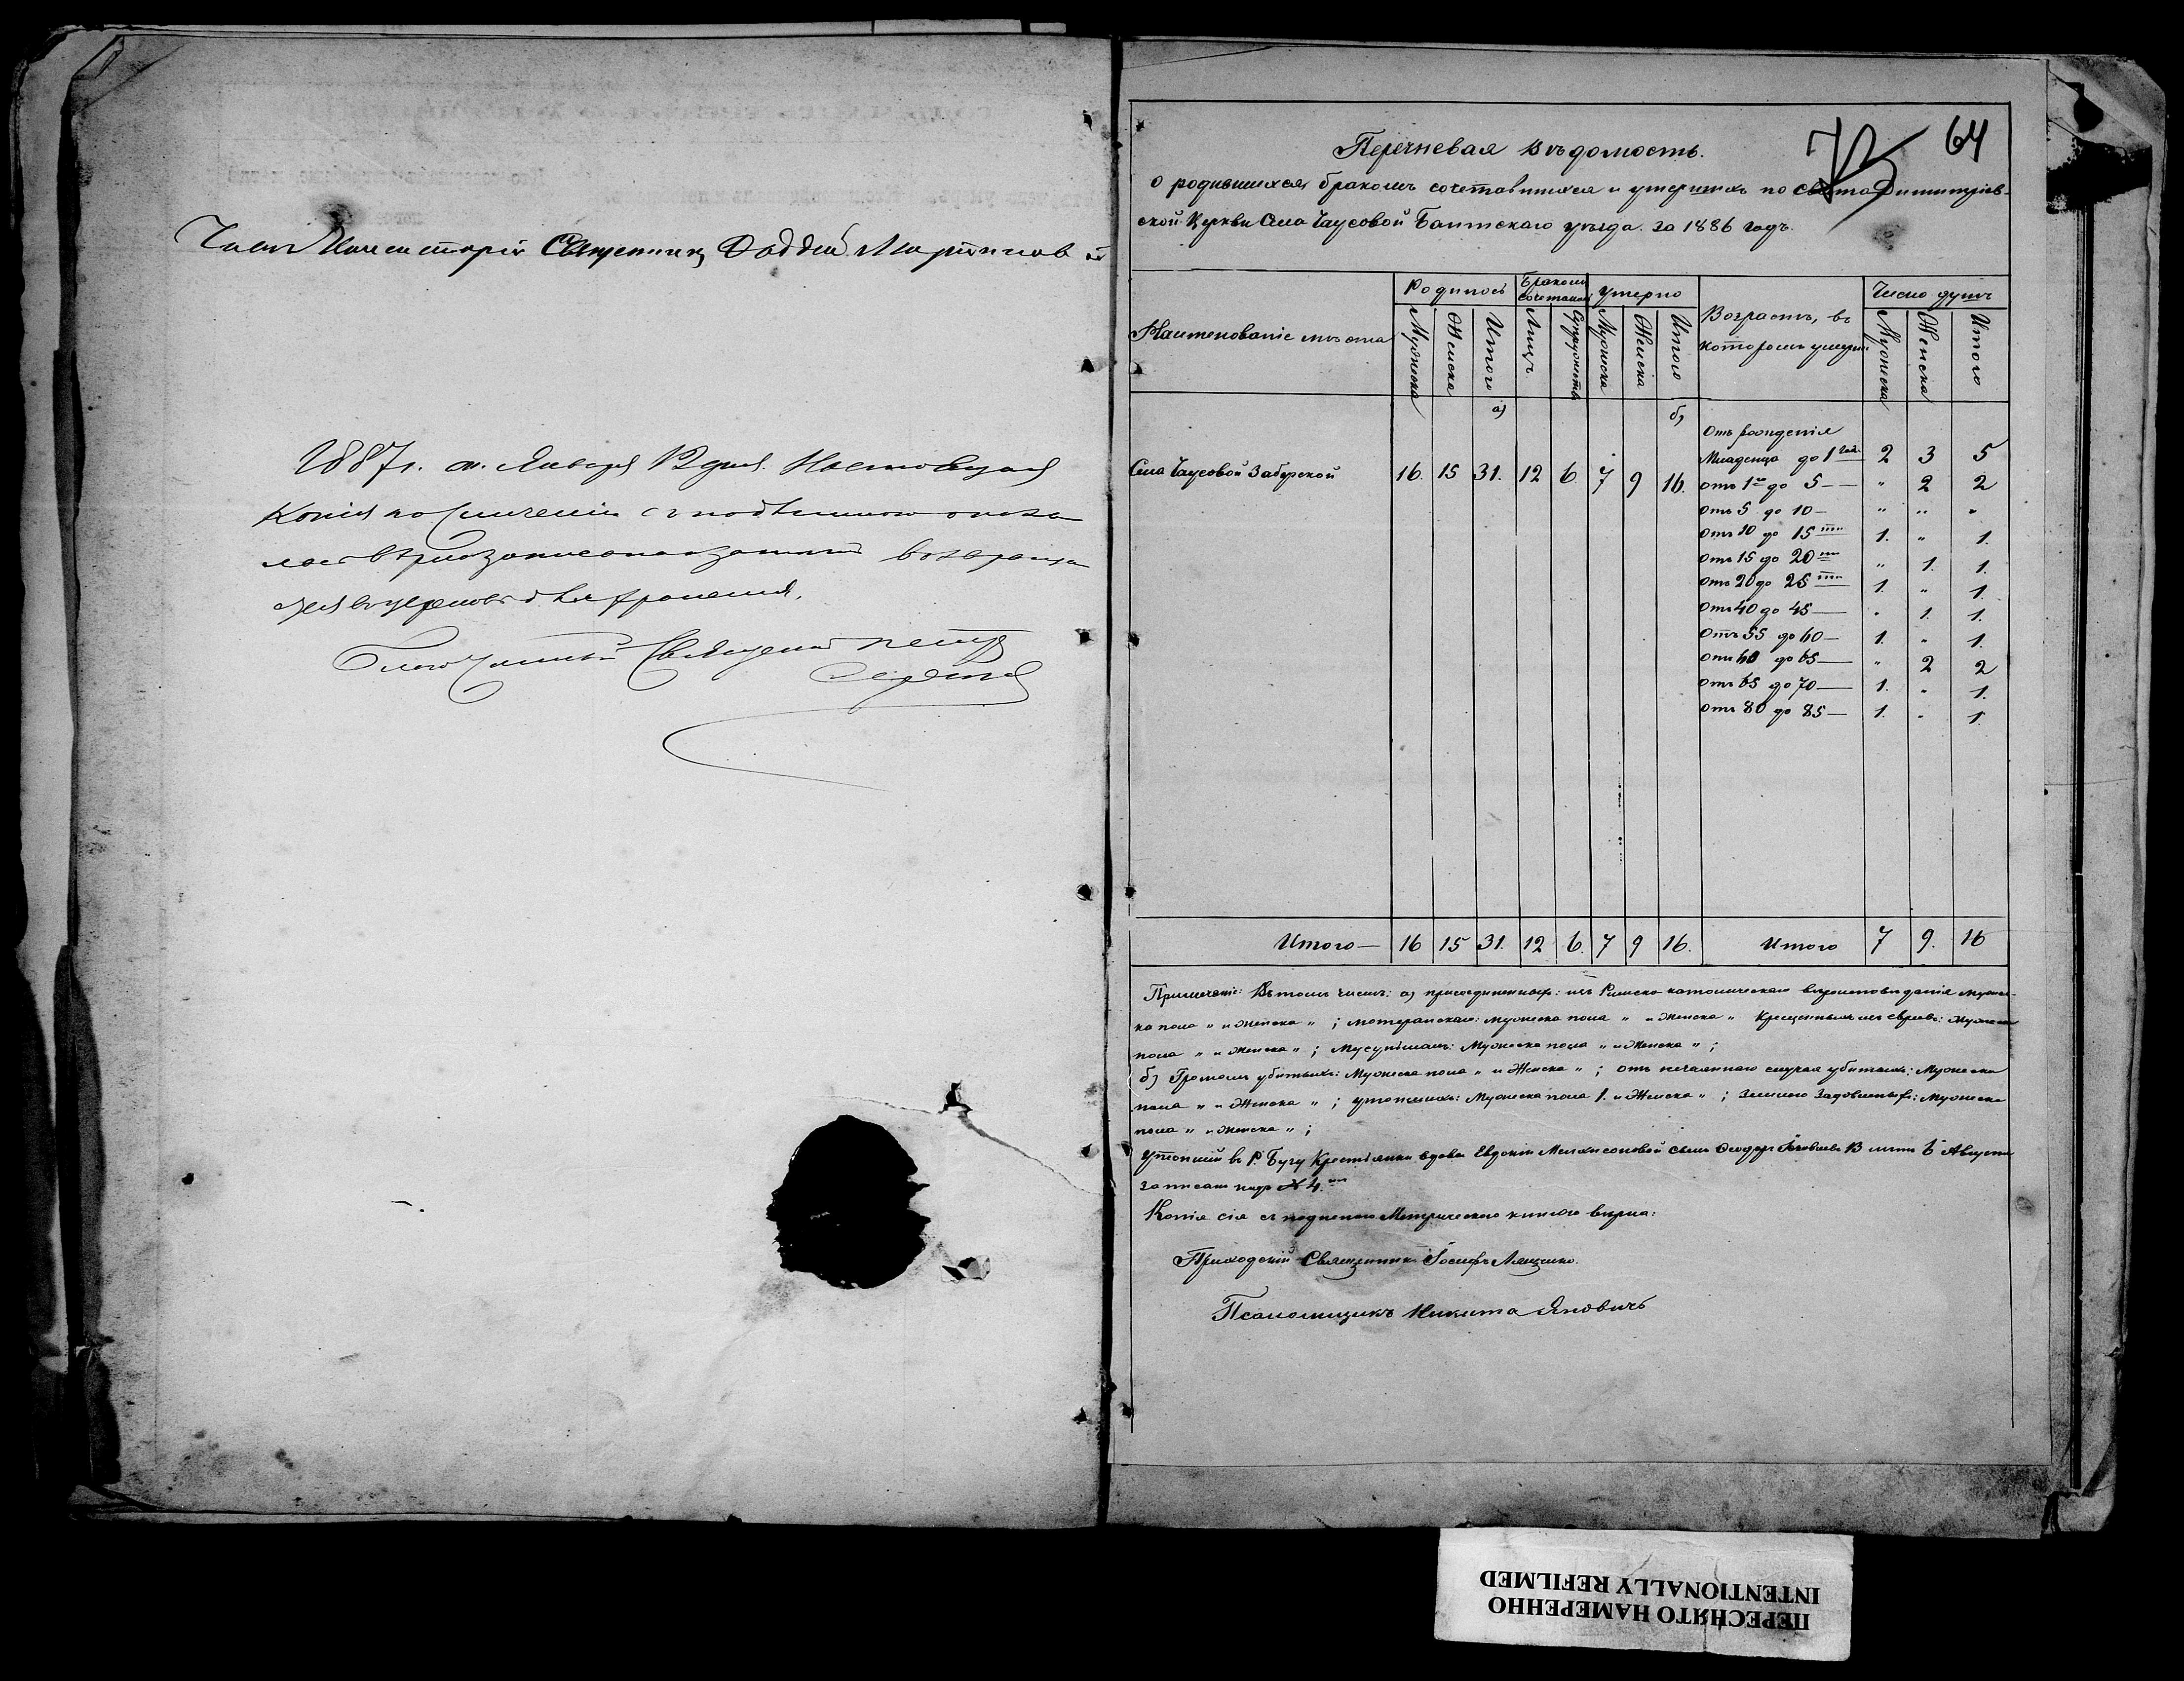 Членъ Консисторіи Священникъ Фаддей
1887 г. м. Января 12 дня. Настоящая
Копія по сличеніи съ подлинною оказа
лась
для храненія.
Благочинный Священникъ Петръ
64
Перечневая Вѣдомость.
о родившихся, бракомъ сочетавшихся и умершихъ по Свято Димитріев-
ской Церкви Села Чаусовой Балтскаго уѣзда за 1886 годъ.
Наименованіе мѣста
Родилось
Бракомъ сочетались
Умерло
Возрастъ, въ
которомъ умерли
Число душъ
Мужеска Женска Итого Лицъ Супружествъ Мужеска Женска Итого Мужеска Женска Итого
а) б)
Отъ рожденія
Младенца до 1 год. 2 3 5
Села Чаусовой Забугской 16. 15 31. 12 6 7 9 16.
отъ 1го до 5 — " 2 2
отъ 5 до 10 — " " "
отъ 10 до 15ти 1. " 1.
отъ 15 до 20ти " 1. 1.
отъ 20 до 25ти 1. " 1.
отъ 40 до 45 — " 1 1.
отъ 55 до 60 — 1. " 1.
отъ 60 до 65 — " 2 2
отъ 65 до 70 — 1. " 1.
отъ 80 до 85 — 1. " 1.
Итого — 16 15 31. 12 6. 7 9 16. Итого 7 9. 16
Примѣчаніе: Въ томъ числѣ: а) присоединенныхъ: изъ Римско католическаго вѣроисповѣданія Мужес-
ка пола " и Женска " ; лютеранскаго: Мужеска пола " и Женска " Крещенныхъ изъ евреевъ: Мужеска
пола " и Женска " ; Мусульманъ: Мужеска пола " и Женска " ;
б) Громомъ убитыхъ: Мужеска пола " и Женска " ; отъ нечаяннаго случая убитыхъ: Мужеска
пола " и Женска " ; утопшихъ: Мужеска пола 1. и Женска " ; Землею Задавленныхъ: Мужеска
пола " и Женска " ;
Утопшій въ Р. Бугу Крестьянки вдовы Евдокіи сынъ Феодоръ 13 лѣтъ 6 Августа
записанъ подъ № 4.
Копія сія съ подлинною Метрическою книгою вѣрна:
Приходскій Священникъ Іосифъ Лященко.
Псаломщикъ Никита Яновичъ
ПЕРЕСНЯТО НАМЕРЕННО
INTENTIONALLY REFILMED